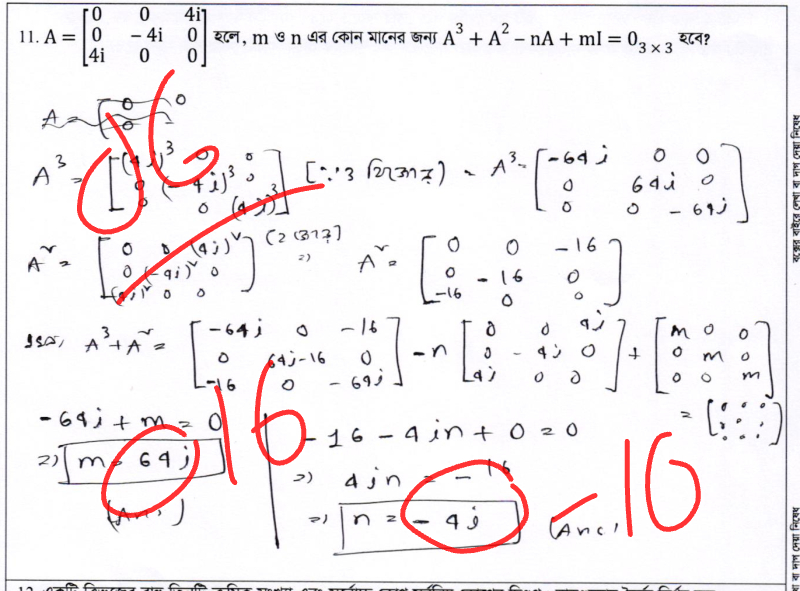 11. A = [0 0 4i
0 - 4i 0
4i 0 0] হলে, m ও n এর কোন মানের জন্য A³ + A² – nA + mI = 0₃ ₓ ₃ হবে?
A = [0 0
0
A³ = [(4i)³ 0 0
0 (-4i)³ 0
0 0 (4i)³] [∵ 3 বিজোড়] = A³ = [-64i 0 0
0 64i 0
0 0 -64i]
A² = [0 0 (4i)²
0 (-4i)² 0
(4i)² 0 0] [2 জোড়] ⇒ A² = [0 0 -16
0 -16 0
-16 0 0]
A³ + A² = [-64i 0 -16
0 64i-16 0
-16 0 -64i] - n [0 0 4i
0 -4i 0
4i 0 0] + [m 0 0
0 m 0
0 0 m]
= [0 0 0
0 0 0
0 0 0]
-64i + m = 0
⇒ m = 64i
(Ans)
-16 - 4in + 0 = 0
⇒ 4in = -16
⇒ n = -4i (Ans)
16
-10